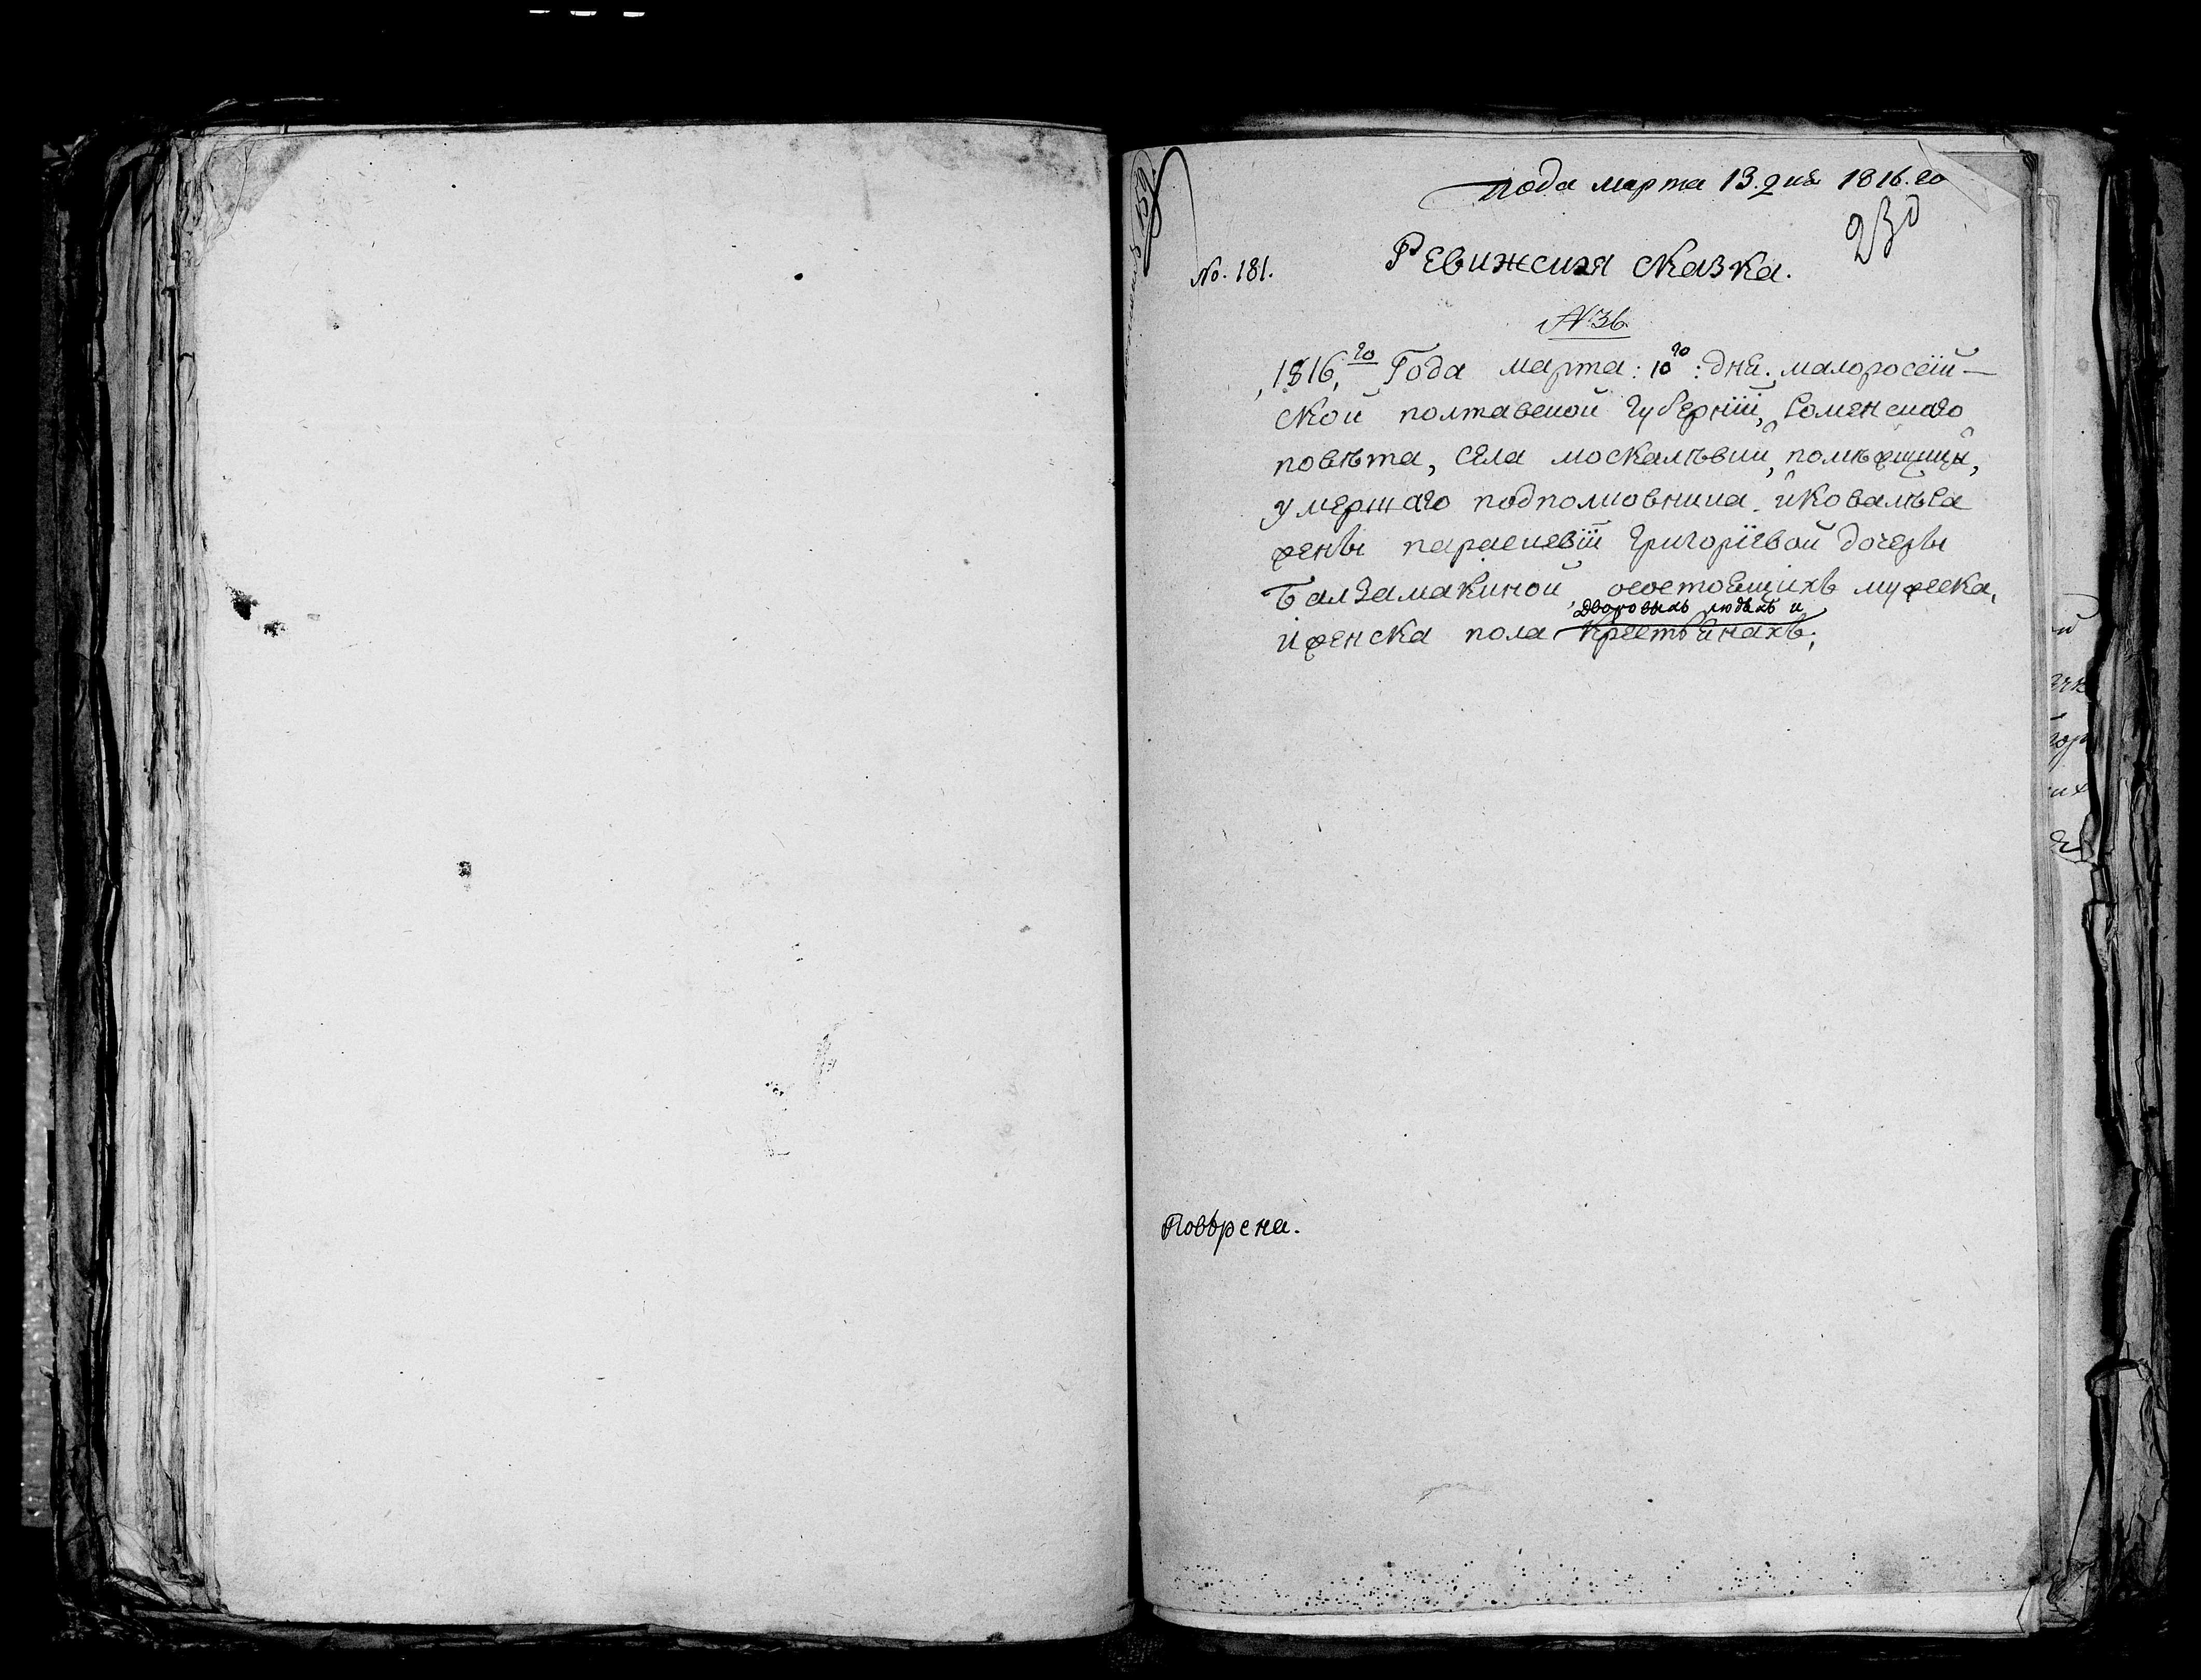 Пода марта 13. дня 1816. го
230
No. 181.
Ревижская сказка.
№ 36
1816,го Года марта: 10го: дня. малороссїй—
ской полтавской губернїи, Роменскаго
повѣта, села москалѣвки, помѣщицы,
умершаго подполковника. и кавалѣра
жены параскевїи григорїевой дочеры
Балзамакиной, о состоящихъ мужеска,
дворовыхъ людяхъ и
и женска пола крестьянахъ;
Повѣрена.